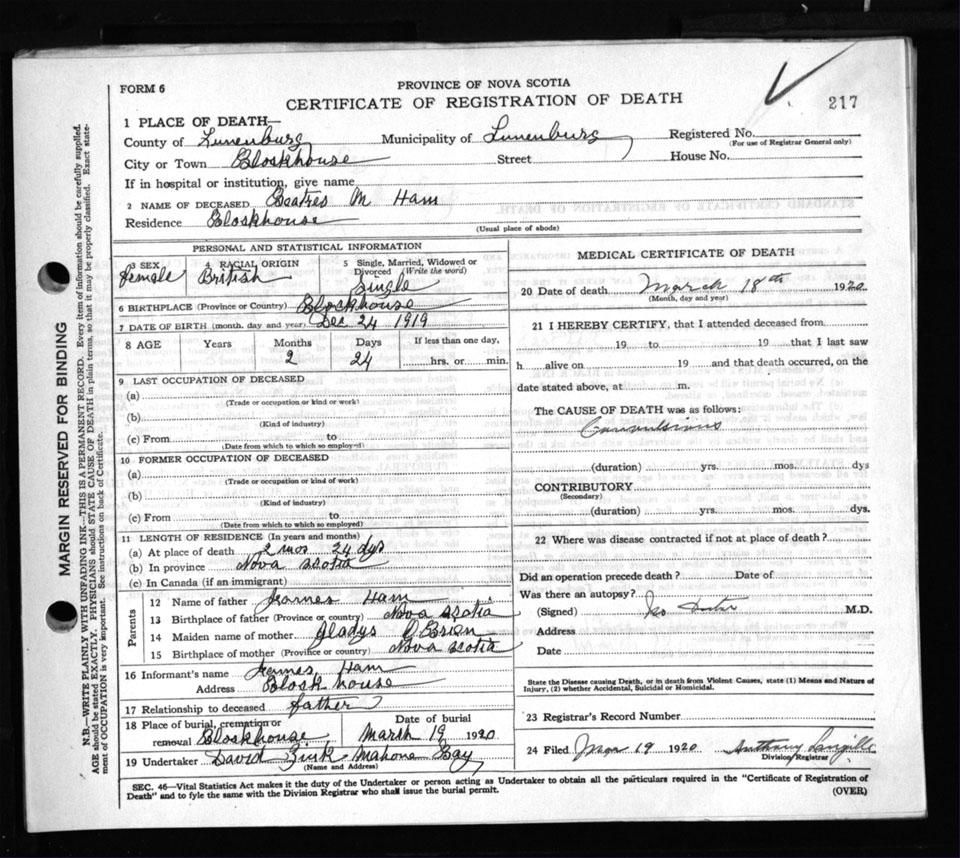 FORM 6
PROVINCE OF NOVA SCOTIA
CERTIFICATE OF REGISTRATION OF DEATH
217
1 PLACE OF DEATH—
County of Lunenburg Municipality of Lunenburg Registered No.
(For use of Registrar General only)
City or Town Blockhouse Street House No.
If in hospital or institution, give name
2 NAME OF DECEASED Beatres M Ham
Residence Blockhouse
(Usual place of abode)
PERSONAL AND STATISTICAL INFORMATION
3 SEX 4 RACIAL ORIGIN 5 Single, Married, Widowed or Divorced (Write the word)
female British Single
6 BIRTHPLACE (Province or Country) Blockhouse
7 DATE OF BIRTH (month, day and year) Dec 24 1919
8 AGE Years Months Days If less than one day,
2 24 hrs. or min.
9 LAST OCCUPATION OF DECEASED
(a)
(Trade or occupation or kind or work)
(b)
(Kind of industry)
(c) From to
(Date from which to which so employed)
10 FORMER OCCUPATION OF DECEASED
(a)
(Trade or occupation or kind of work)
(b)
(Kind of industry)
(c) From to
(Date from which to which so employed)
11 LENGTH OF RESIDENCE (In years and months)
(a) At place of death 2 mos 24 dys
(b) In province Nova Scotia
(c) In Canada (if an immigrant)
Parents
12 Name of father James Ham
13 Birthplace of father (Province or country) Nova Scotia
14 Maiden name of mother Gladys O Brien
15 Birthplace of mother (Province or country) Nova Scotia
16 Informant's name James Ham
Address Block house
17 Relationship to deceased father
18 Place of burial, cremation or removal Blockhouse Date of burial March 19 1920
19 Undertaker David Zink Mahone Bay
(Name and Address)
MEDICAL CERTIFICATE OF DEATH
20 Date of death March 18th 1920
(Month, day and year)
21 I HEREBY CERTIFY, that I attended deceased from
19 to 19 that I last saw
h alive on 19 and that death occurred, on the
date stated above, at m.
The CAUSE OF DEATH was as follows:
Convulsions
(duration) yrs. mos. dys
CONTRIBUTORY
(Secondary)
(duration) yrs. mos. dys.
22 Where was disease contracted if not at place of death?
Did an operation precede death? Date of
Was there an autopsy?
(Signed) No Doctor M.D.
Address
Date
State the Disease causing Death, or in death from Violent Causes, state (1) Means and Nature of
Injury, (2) whether Accidental, Suicidal or Homicidal.
23 Registrar's Record Number
24 Filed Mar 19 1920 Anthony Langille
Division Registrar
SEC. 46—Vital Statistics Act makes it the duty of the Undertaker or person acting as Undertaker to obtain all the particulars required in the "Certificate of Registration of
Death" and to fyle the same with the Division Registrar who shall issue the burial permit.
(OVER)
MARGIN RESERVED FOR BINDING
N.B.—WRITE PLAINLY WITH UNFADING INK—THIS IS A PERMANENT RECORD. Every item of information should be carefully supplied.
AGE should be stated EXACTLY. PHYSICIANS should STATE CAUSE OF DEATH in plain terms, so that it may be properly classified. Exact state-
ment of OCCUPATION is very important. See instructions on back of Certificate.